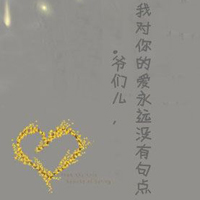 我对你的爱永远没有句点
·爷们儿，